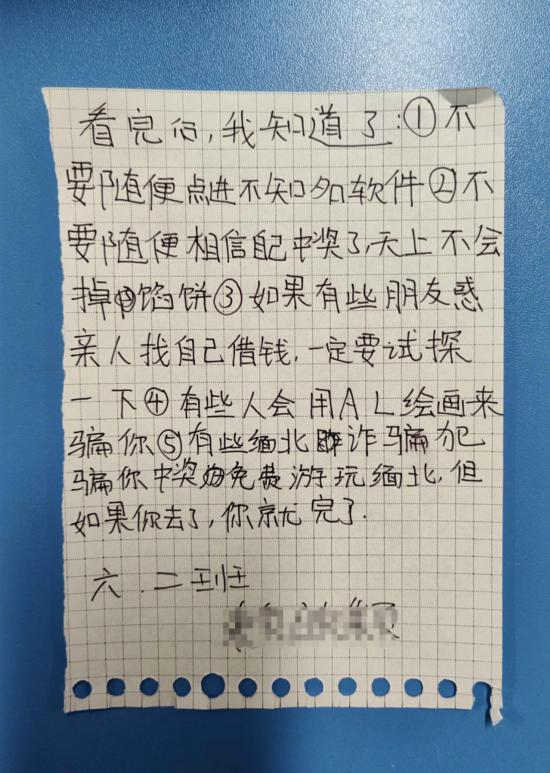 看完后,我知道了:①不
要随便点进不知名软件②不
要随便相信自己中奖了,天上不会
掉馅饼③如果有些朋友或
亲人找自己借钱,一定要试探
一下④有些人会用AL绘画来
骗你⑤有些缅北诈骗犯
骗你中奖免费游玩缅北,但
如果你去了,你就完了.
六.二班